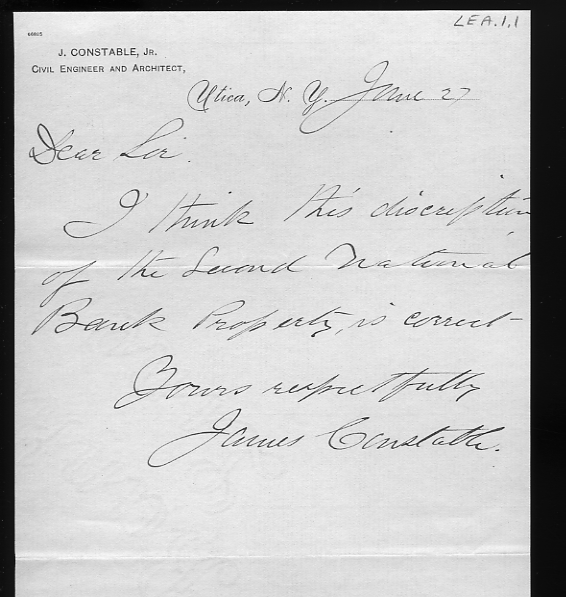 LEA.1.1
J. CONSTABLE, JR.
CIVIL ENGINEER AND ARCHITECT,
Utica, N. Y. June 27
Dear Sir.
I think this discreption
of the Second National
Bank Property, is correct-
Yours respectfully
James Constable.